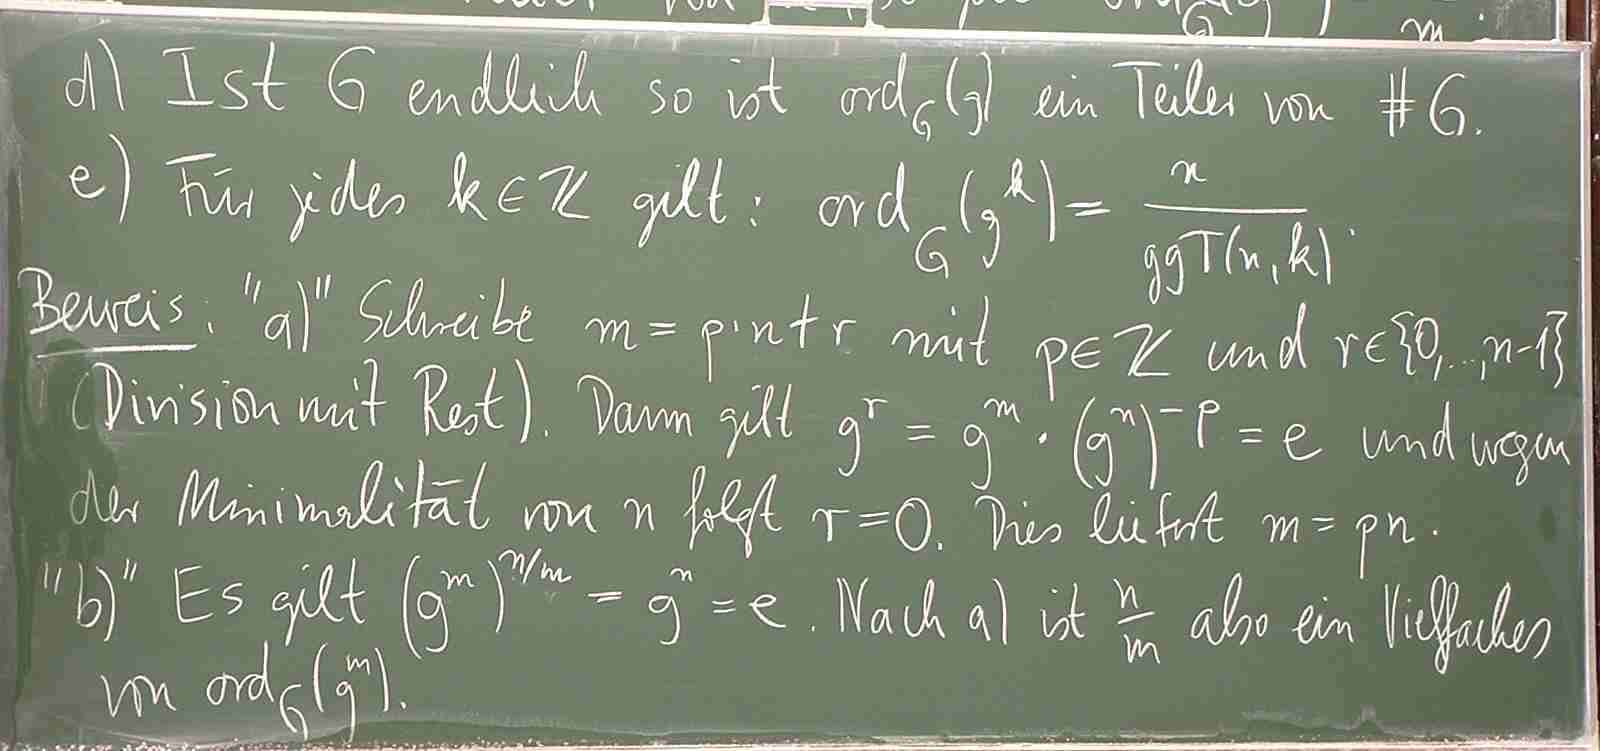 m .
d) Ist G endlich so ist ord_G(g) ein Teiler von #G.
e) Für jedes k ∈ ℤ gilt: ord_G(g^k) = n / ggT(n, k).
Beweis: "a)" Schreibe m = p·n + r mit p ∈ ℤ und r ∈ {0,..,n-1}
(Division mit Rest). Dann gilt g^r = g^m · (g^n)^{-p} = e und wegen
der Minimalität von n folgt r = 0. Dies liefert m = pn.
"b)" Es gilt (g^m)^{n/m} = g^n = e. Nach a) ist n/m also ein Vielfaches
von ord_G(g^m).